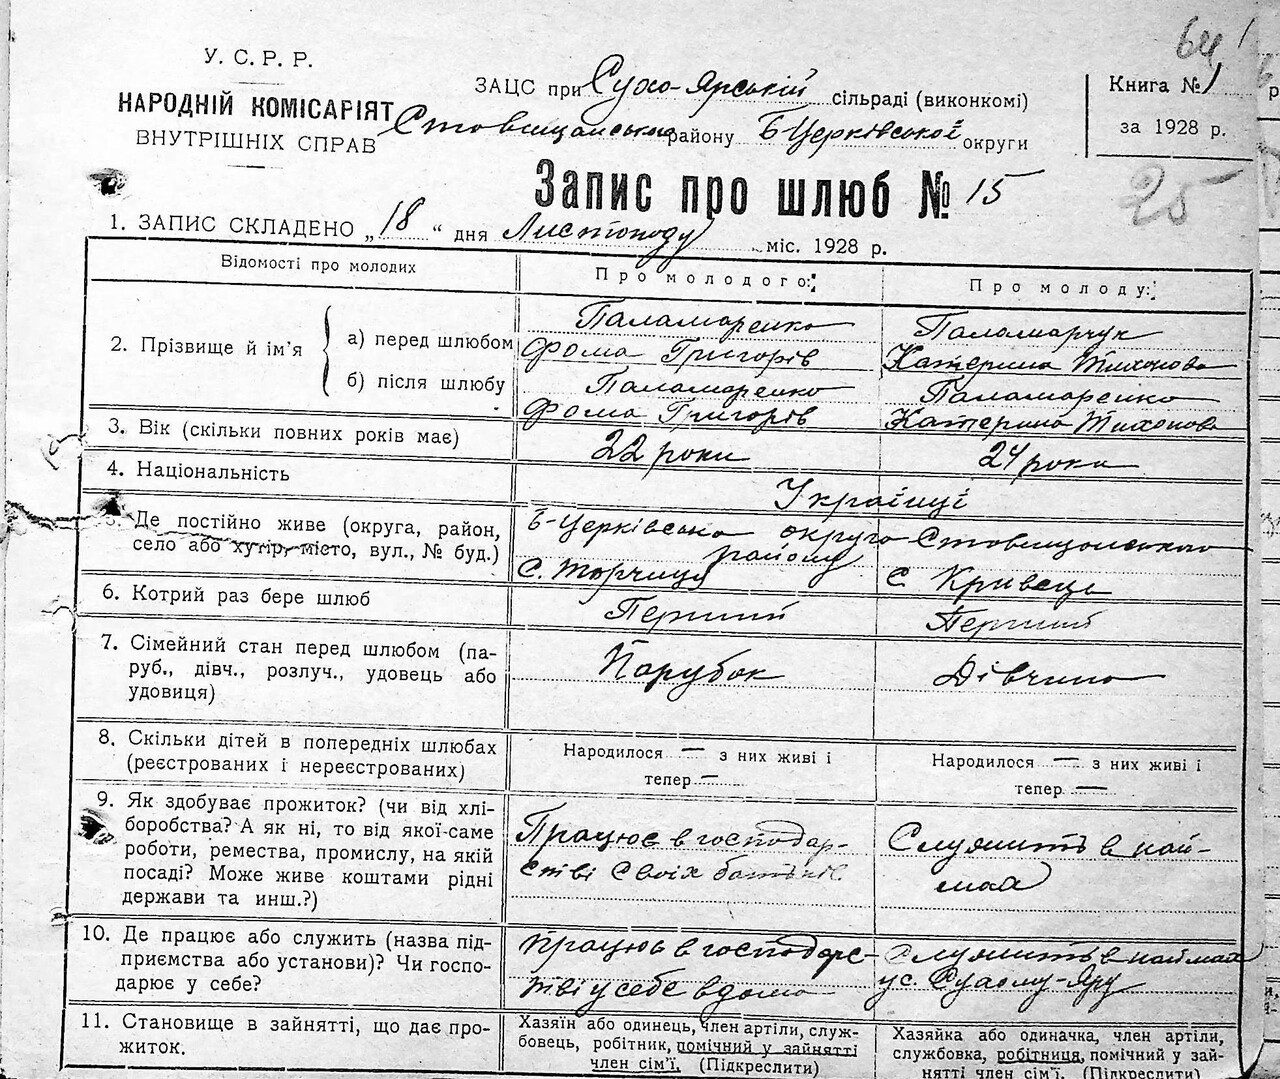 64
У. С. Р. Р.
НАРОДНІЙ КОМІСАРІЯТ
ВНУТРІШНІХ СПРАВ
ЗАЦС при Сухо-Ярській сільраді (виконкомі)
Ставищанського району Б Церківської округи
Книга № 1
за 1928 р.
25
Запис про шлюб № 15
1. ЗАПИС СКЛАДЕНО „18" дня Листопаду міс. 1928 р.
Відомості про молодих
Про молодого:
Про молоду:
2. Прізвище й ім'я
а) перед шлюбом
Паламаренко
Фома Григорів
Паламарчук
Катерина Тихонова
б) після шлюбу
Паламаренко
Фома Григорів
Паламаренко
Катерина Тихонова
3. Вік (скільки повних років має)
22 роки
24 рока
4. Національність
Українці
5. Де постійно живе (округа, район,
село або хутір, місто, вул., № буд.)
Б-Церківська округа Ставищанського
району
с. Торчиця
с. Кривець
6. Котрий раз бере шлюб
Перший
Перший
7. Сімейний стан перед шлюбом (па-
руб., дівч., розлуч., удовець або
удовиця)
Парубок
Дівчина
8. Скільки дітей в попередніх шлюбах
(реєстрованих і нереєстрованих)
Народилося — з них живі і
тепер —
Народилося — з них живі і
тепер —
9. Як здобуває прожиток? (чи від хлі-
боробства? А як ні, то від якої-саме
роботи, ремества, промислу, на якій
посаді? Може живе коштами рідні
держави та инш.?)
Працює в господар-
стві своїх батьків
Служить в най-
мах
10. Де працює або служить (назва під-
приємства або установи)? Чи госпо-
дарює у себе?
працює в господарс-
тві у себе вдома
Служить в наймах
у с. Сухому-Яру
11. Становище в зайнятті, що дає про-
житок.
Хазяїн або одинець, член артіли, служ-
бовець, робітник, помічний у зайнятті
член сім'ї. (Підкреслити)
Хазяйка або одиначка, член артіли,
службовка, робітниця, помічний у зай-
нятті член сім'ї. (Підкреслити)